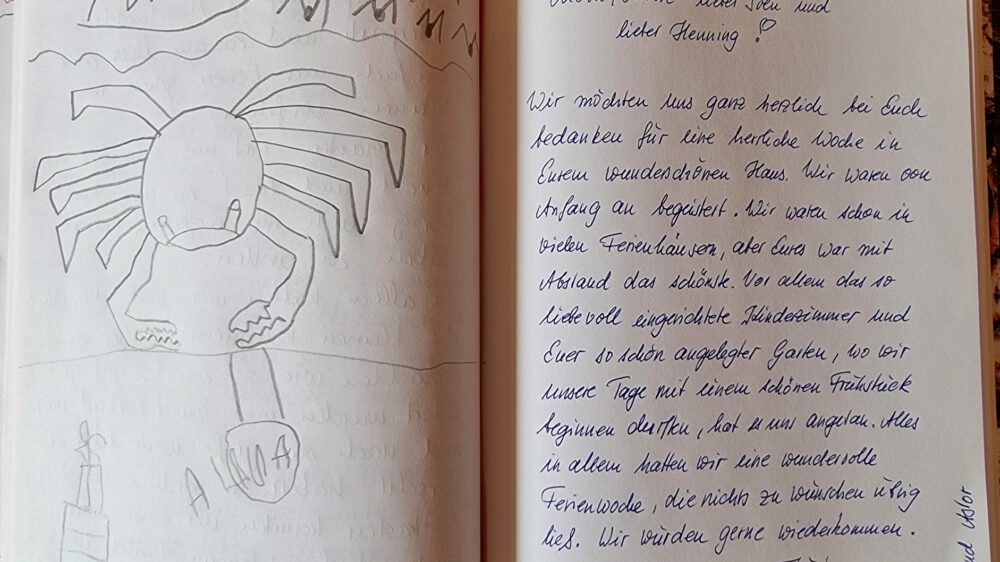 lieber Sven und
lieber Henning!
Wir möchten uns ganz herzlich bei Euch
bedanken für eine herrliche Woche in
Eurem wunderschönen Haus. Wir waren von
Anfang an begeistert. Wir waren schon in
vielen Ferienhäusern, aber Eures war mit
Abstand das schönste. Vor allem das so
liebevoll eingerichtete Kinderzimmer und
Euer so schön angelegter Garten, wo wir
unsere Tage mit einem schönen Frühstück
beginnen durften, hat es uns angetan. Alles
in allem hatten wir eine wundervolle
Ferienwoche, die nichts zu wünschen übrig
ließ. Wir würden gerne wiederkommen.